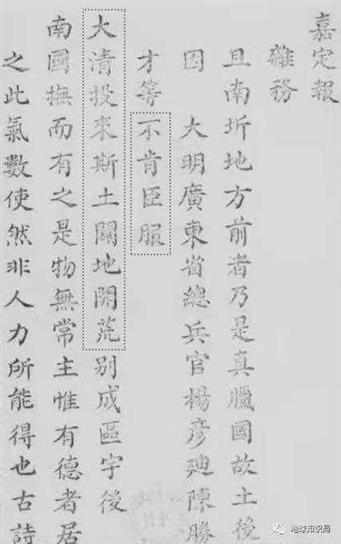 嘉定報
雜務
且南圻地方前者乃是真臘國故土後
因　大明廣東省總兵官楊彥迪陳勝
才等不肯臣服
大清投來斯土闢地開荒别成區宇後
南國撫而有之是物無常主惟有德者居
之此氣數使然非人力所能得也古詩
地球知识局